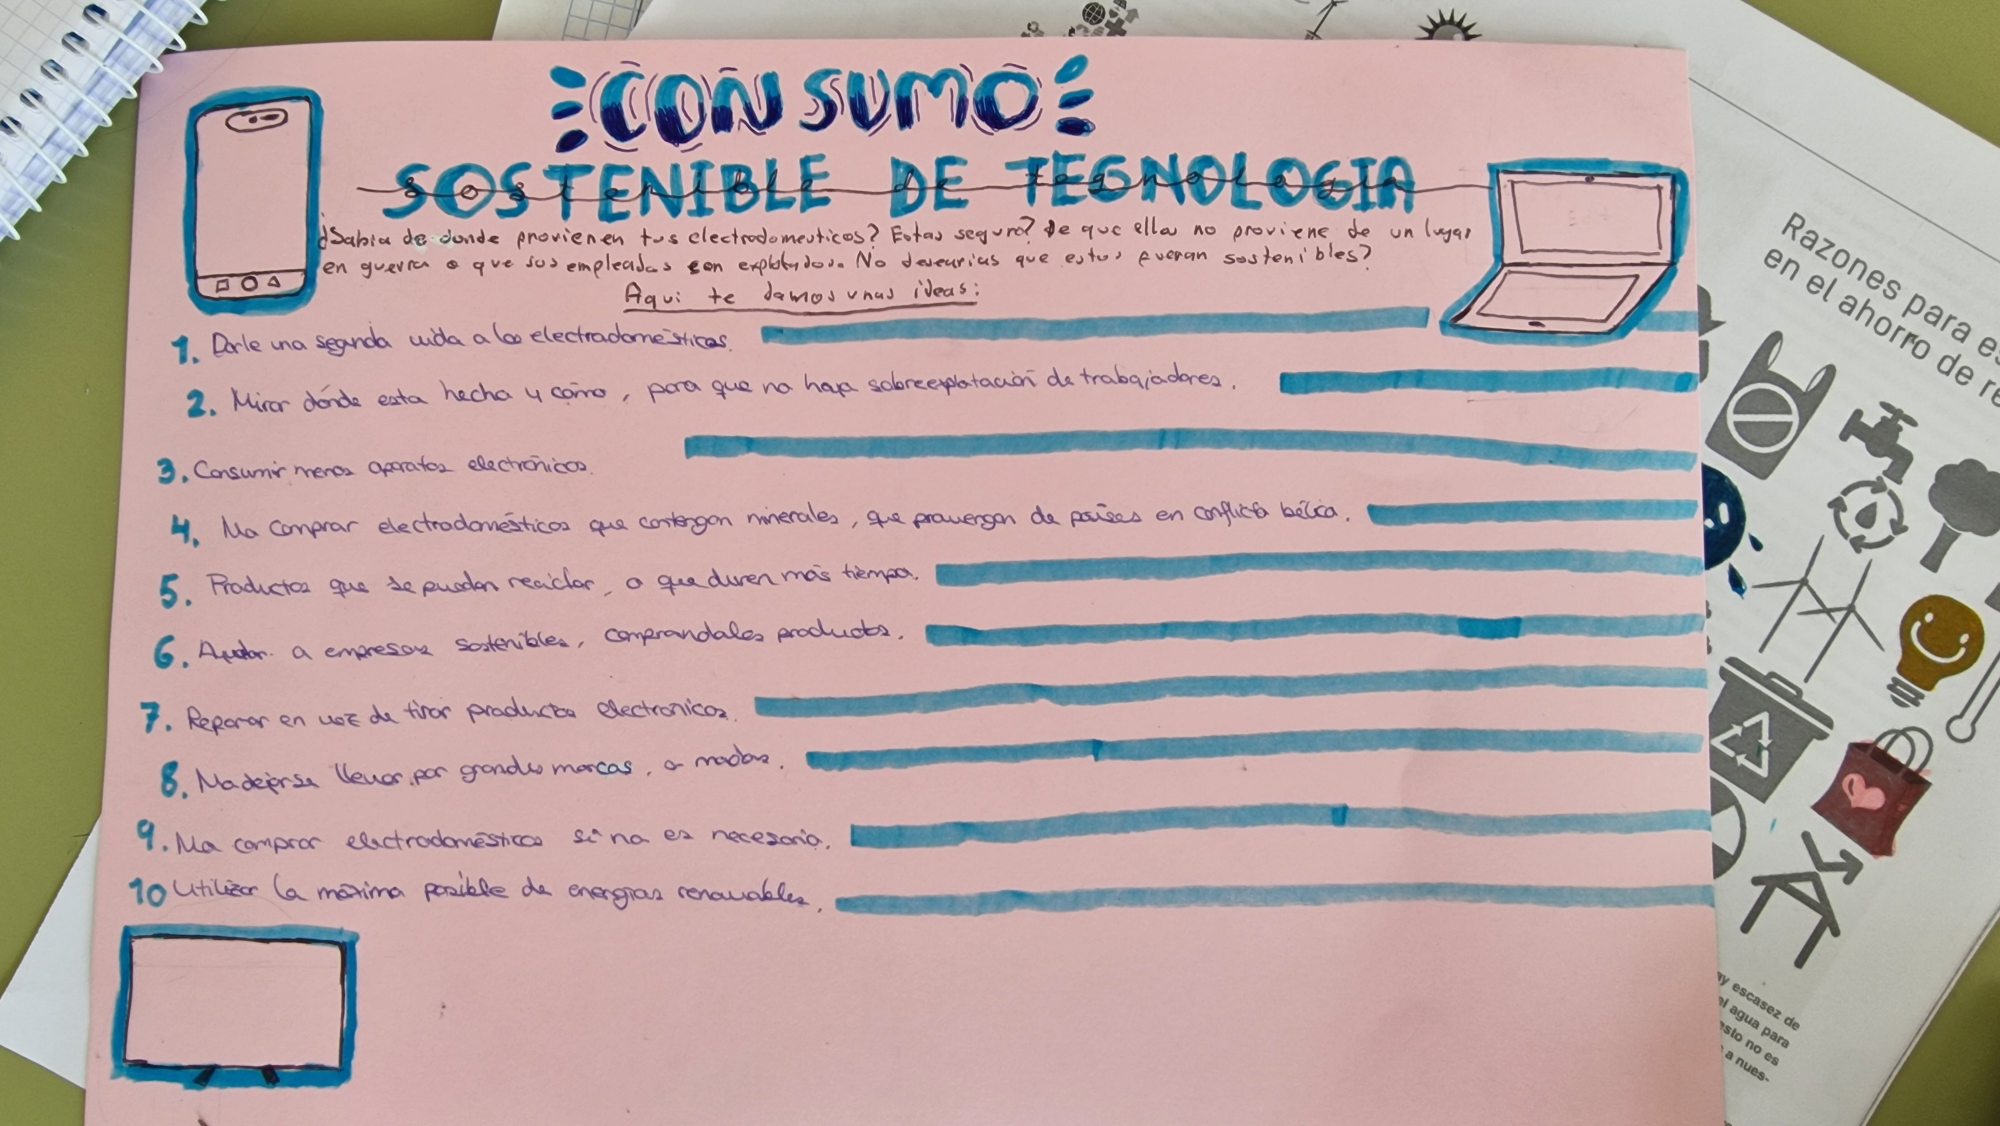 CONSUMO
SOSTENIBLE DE TEGNOLOGIA
¿Sabia de donde provienen tus electrodomesticos? Estas seguro? De que ellos no proviene de un lugar
en guerra o que sus empleados son explotados. No desearias que estos fueran sostenibles?
Aqui te damos unas ideas:
1. Darle una segunda vida a los electrodomésticos.
2. Mirar dónde esta hecha y cómo, para que no haya sobreexplotación de trabajadores.
3. Consumir menos aparatos electrónicos.
4. No comprar electrodomésticos que contengan minerales, que provengan de países en conflicto bélico.
5. Productos que se puedan reciclar, o que duren más tiempo.
6. Ayudar a empresas sostenibles, comprandoles productos.
7. Reparar en vez de tirar productos electronicos.
8. No dejarse llevar por grandes marcas, o modas.
9. No comprar electrodomésticos si no es necesario.
10 Utilizar lo máximo posible de energías renovables.
Razones para es
en el ahorro de re
ay escasez de
el agua para
esto no es
a nues-